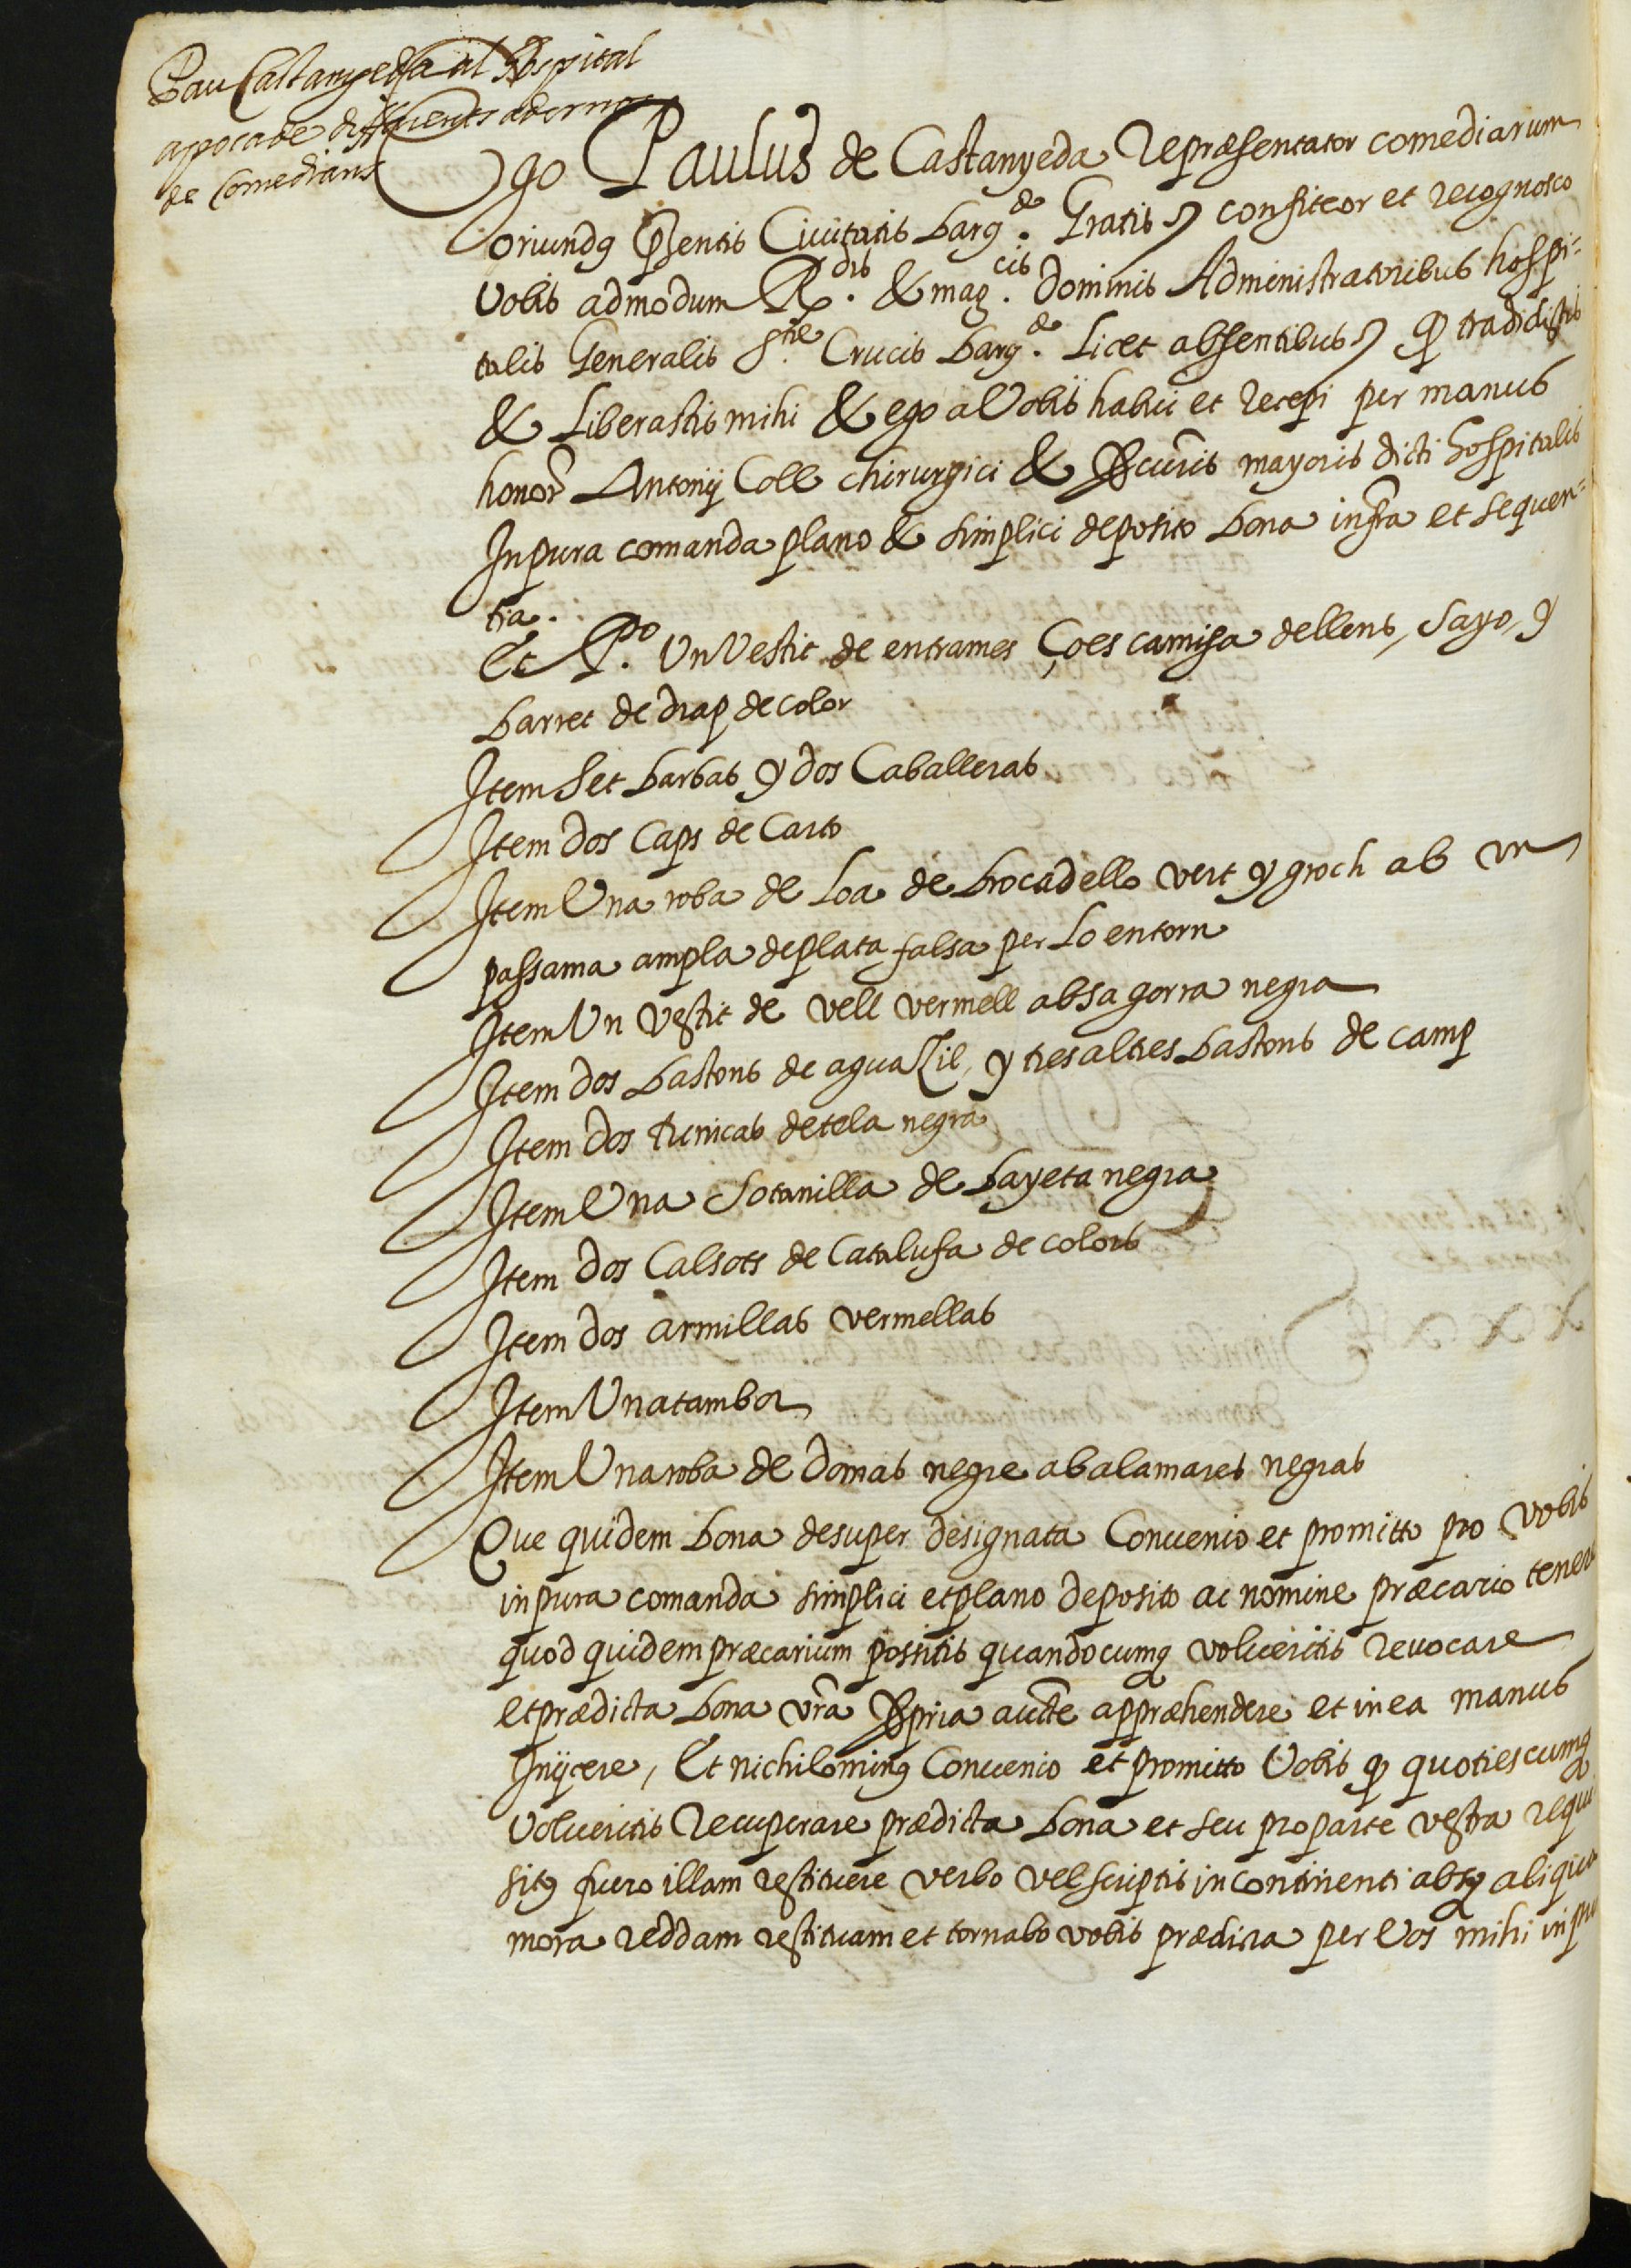 Pau Castanyeda al Hospital
appoca de differents adornos
de Comediants
Ego Paulus de Castanyeda Repræsentator comediarum
oriundus pñtis Ciuitatis barñe. Gratis &c confiteor et recognosco
Vobis admodum Rdis. & magcis. Dominis Administratoribus hospi=
talis Generalis Stæ. Crucis barñe. Licet absentibus &c q̃ tradidistis
& Liberastis mihi & ego a Vobis habui et recepi per manus
honor Antonij Coll chirurgici & Pcuris mayoris dicti hospitalis
In pura comanda plano & simplici deposito bona infra et sequen=
tia.
Et Po. Un Vestit de entrames Ço es camisa de llens, sayo, y
barret de drap de color
Item Set barbas y dos Caballeras
Item dos Caps de Carto
Item Una roba de Loa de brocadello vert y groch ab un
passama ampla de plata falsa per Lo entorn
Item Un Vestit de vell vermell ab sa gorra negra
Item dos bastons de aguazil, y tres altres bastons de camp
Item dos tunicas de tela negra
Item Una Sotanilla de bayeta negra
Item dos Calsots de Catalufa de colors
Item dos armillas vermellas
Item Una tambor
Item Una roba de Domas negre ab alamares negras
Que quidem bona desuper designata Conuenio et promitto pro vobis
in pura comanda simplici et plano deposito ac nomine præcario tenere
quod quidem præcarium possitis quandocumq volueritis reuocare
et prædicta bona vra Ppria aucte appræhendere et in ea manus
Inijcere, Et nichilominus Conuenio et promitto Vobis q̃ quotiescumq
Volueritis Recuperare prædicta bona et seu pro parte vestra requi
situs fuero illam restituere verbo vel scriptis in continenti absq aliqua
mora reddam restituam et tornabo vobis prædicta per Vos mihi in pu